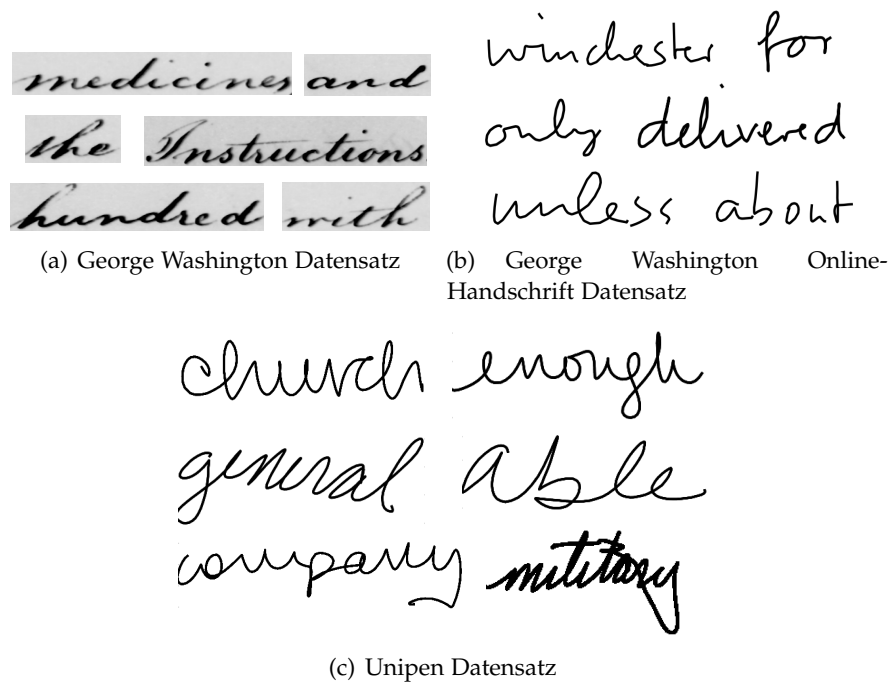 medicines and
the Instructions
hundred with
(a) George Washington Datensatz
winchester for
only delivered
unless about
(b) George Washington Online-
Handschrift Datensatz
church enough
general able
company military
(c) Unipen Datensatz